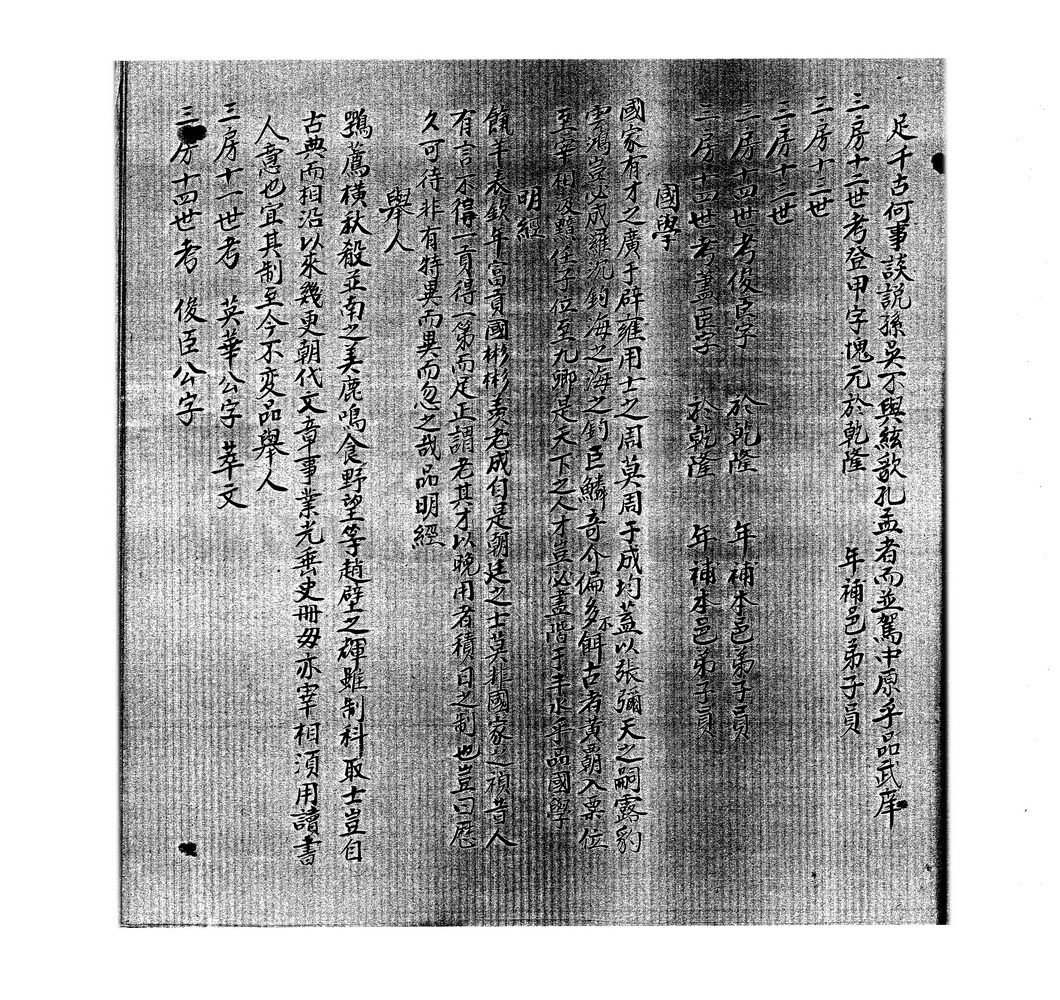 足千古何事談説孫吳不與絃歌孔孟者而並駕中原乎品武庠
三房十二世考登甲字塊元於乾隆 年補邑弟子員
三房十三世
三房十三世
三房十四世考俊臣字 於乾隆 年補本邑弟子員
三房十四世考蓋臣字 於乾隆 年補本邑弟子員
國學
國家有才之廣于辟雍用士之周莫周于成均蓋以張彌天之嗣露豹
雲鴻豈必成羅沉釣海之海之釣巨鱗奇介偏多不餌古者黃霸入粟位
至宰相及黯任子位至九卿是天下之人才豈必盡階于丰水乎品國學
明經
餼羊表欽年富貢國彬彬黃老成自是朝廷之士莫非國家之禎昔人
有言不得一貢得一第而足正謂老其才以晚用者積日之制也豈曰歷
久可待非有特異而異而忽之哉品明經
舉人
鶚薦橫秋殽並南之美鹿鳴食野望等趙璧之輝雖制科取士豈自
古典而相沿以來幾更朝代文章事業光垂史冊毋亦宰相須用讀書
人意也宜其制至今不变品舉人
三房十一世考 英華公字 萃文
三房十四世考 俊臣公字